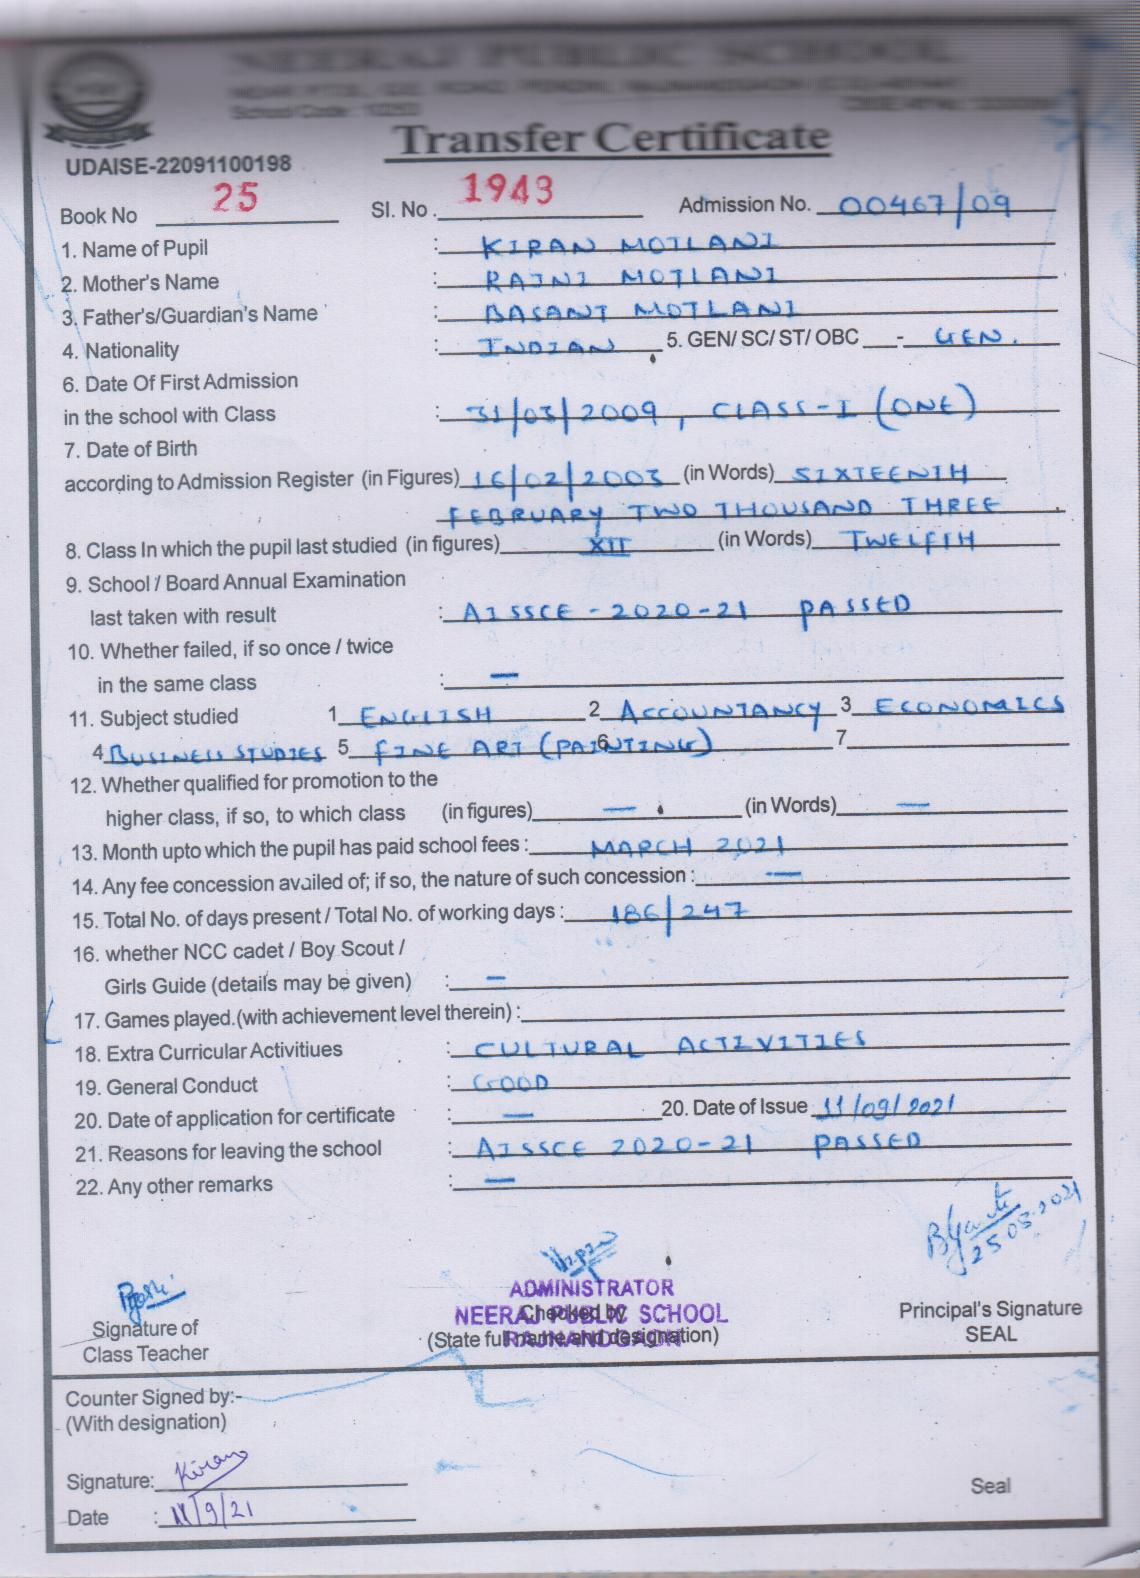 NEERAJ PUBLIC SCHOOL
School Code : 
Transfer Certificate
UDAISE-22091100198
Book No 25 Sl. No . 1943 Admission No. 00467/09
1. Name of Pupil : KIRAN MOTLANI
2. Mother's Name : RAJNI MOTLANI
3. Father's/Guardian's Name : BASANT MOTLANI
4. Nationality : INDIAN 5. GEN/ SC/ ST/ OBC - GEN.
6. Date Of First Admission
in the school with Class : 31/03/2009, CLASS-I (ONE)
7. Date of Birth
according to Admission Register (in Figures) 16/02/2003 (in Words) SIXTEENTH
FEBRUARY TWO THOUSAND THREE
8. Class In which the pupil last studied (in figures) XII (in Words) TWELFTH
9. School / Board Annual Examination
last taken with result : AISSCE - 2020-21 PASSED
10. Whether failed, if so once / twice
in the same class : —
11. Subject studied 1 ENGLISH 2 ACCOUNTANCY 3 ECONOMICS
4 BUSINESS STUDIES 5 FINE ART (PAINTING) 6 7
12. Whether qualified for promotion to the
higher class, if so, to which class (in figures) — (in Words) —
13. Month upto which the pupil has paid school fees : MARCH 2021
14. Any fee concession availed of; if so, the nature of such concession : —
15. Total No. of days present / Total No. of working days : 186/247
16. whether NCC cadet / Boy Scout /
Girls Guide (details may be given) : —
17. Games played.(with achievement level therein) :
18. Extra Curricular Activitiues : CULTURAL ACTIVITIES
19. General Conduct : GOOD
20. Date of application for certificate : — 20. Date of Issue 11/09/2021
21. Reasons for leaving the school : AISSCE 2020-21 PASSED
22. Any other remarks : —
25.03.2021
ADMINISTRATOR
NEERAJ PUBLIC SCHOOL
RAJNANDGAON
Signature of
Class Teacher
Checked by
(State full name and designation)
Principal's Signature
SEAL
Counter Signed by:-
(With designation)
Signature: Kiran
Seal
Date : 11/9/21